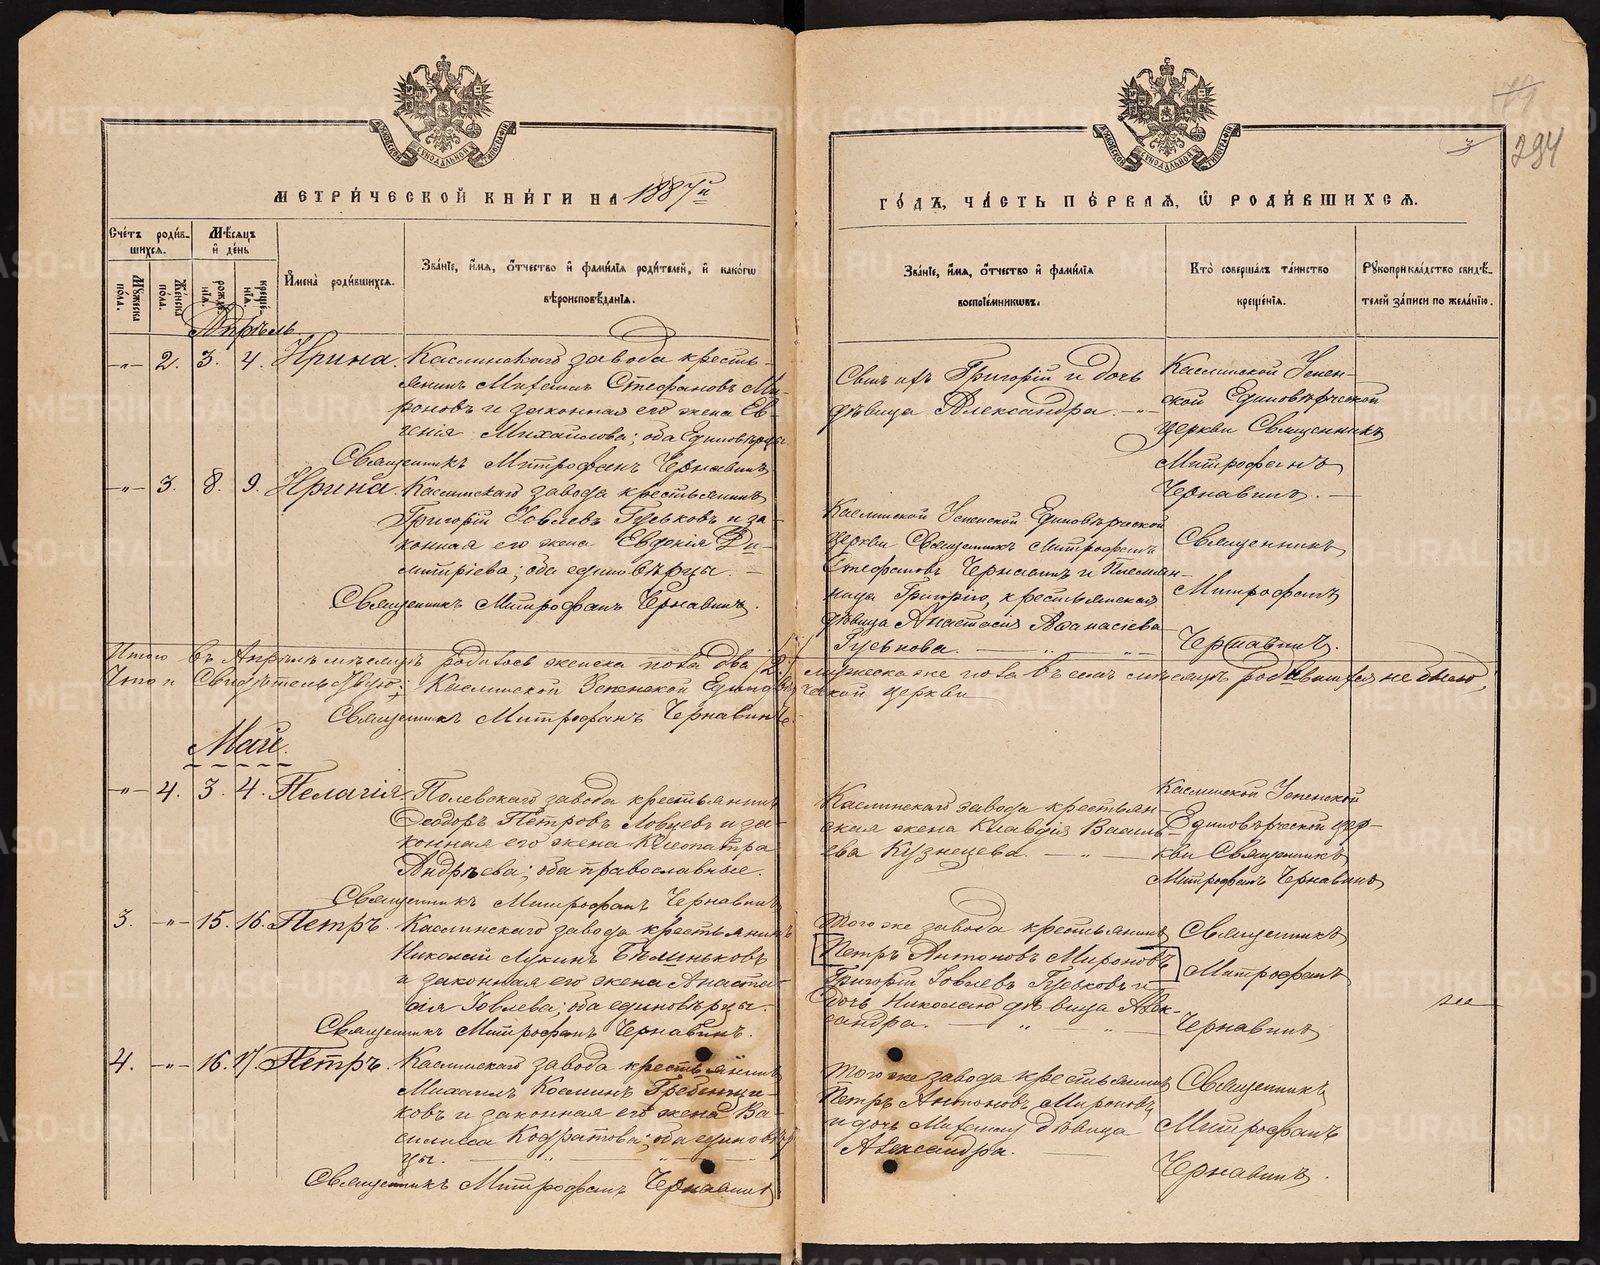 МЕТРИ́ЧЕСКОЙ КНИ́ГИ НА 1887й
ГО́ДЪ, ЧА́СТЬ ПЕ́РВАѦ, Ѡ҆ РОДИ́ВШИХСѦ.
294
Сче́тъ роди́в-
шихсѧ.
Мѣ́сѧцъ
и҆ де́нь
Мꙋ́жеска по́ла.
Же́нска по́ла.
рожде́нїѧ.
креще́нїѧ.
И҆мена̀ роди́вшихсѧ.
Зва́нїе, и҆́мѧ, ѻ҆́тчество и҆ фами́лїѧ роди́телей, и҆ како́гѡ
вѣроисповѣ́данїѧ.
Зва́нїе, и҆́мѧ, ѻ҆́тчество и҆ фами́лїѧ
воспрїе́мникѡвъ.
Кто̀ соверша́лъ та́инство
креще́нїѧ.
Рꙋкоприкла́дство свидѣ́-
телей за́писи по жела́нїю.
Апрѣль
-„- 2. 3. 4. Ирина.
Каслинскаго завода кресть-
янинъ Михаилъ Стефановъ Ми-
роновъ и законная его жена Ев-
генія Михаилова; оба Единовѣрцы
Священникъ Митрофанъ Чернавинъ
Григорій и дочь
дѣвица Александра. -„-
Каслинской Успен-
ской Единовѣрческой
церкви Священникъ
Митрофанъ
Чернавинъ. —
-„- 3. 8. 9. Ирина.
Каслинскаго завода крестьянинъ
Григорій Іовлевъ Гуськовъ и за-
конная его жена Евдокія Ди-
митріева; оба единовѣрцы. —
Священникъ Митрофанъ Чернавинъ.
Каслинской Успенской Единовѣрческой
церкви Священникъ Митрофанъ
Стефановъ Чернавинъ и племян-
ница Григорію, крестьянская
дѣвица Анастасія Аѳанасіева
Гуськова. — „ — „ —
Священникъ
Митрофанъ
Чернавинъ.
Итого въ Апрѣлѣ мѣсяцѣ родилось женска пола два /2/ мужеска же пола въ семъ мѣсяцѣ родившихся не было,
Что и Свидѣтельствую: Каслинской Успенской Единовѣрческой церкви
Священникъ Митрофанъ Чернавинъ.
Май.
-„- 4. 3. 4. Пелагія.
Полевскаго завода крестьянинъ
Ѳеодоръ Петровъ Ловцевъ и за-
конная его жена Клеопатра
Андрѣева; оба православные.
Священникъ Митрофанъ Чернавинъ
Каслинскаго завода крестьян-
ская жена Клавдія Василь-
ева Кузнецева. — „ —
Каслинской Успенской
Единовѣрческой цер-
кви Священникъ
Митрофанъ Чернавинъ
3. -„- 15. 16. Петръ.
Каслинскаго завода крестьянинъ
Николай Лукинъ Бѣлиньковъ
и законная его жена Анаста-
сія Іовлева; оба единовѣрцы.
Священникъ Митрофанъ Чернавинъ.
Того же завода крестьянинъ
Петръ Антоновъ Мироновъ
Григорій Іовлевъ Гуськовъ и
дочь Николаю дѣвица Алек-
сандра. — „ „
Священникъ
Митрофанъ
Чернавинъ
4. -„- 16. 17. Петръ.
Каслинскаго завода крестьянинъ
Михаилъ Косминъ Гребенщи-
ковъ и законная его жена Ва-
силисса Кодратова; оба единовѣр-
цы. — „ — „ —
Священникъ Митрофанъ Чернавинъ
Того же завода крестьянинъ
Петръ Антоновъ Мироновъ
и дочь Михаилу дѣвица
Александра. —
Священникъ
Митрофанъ
Чернавинъ.
METRIKI.GASO-URAL.RU